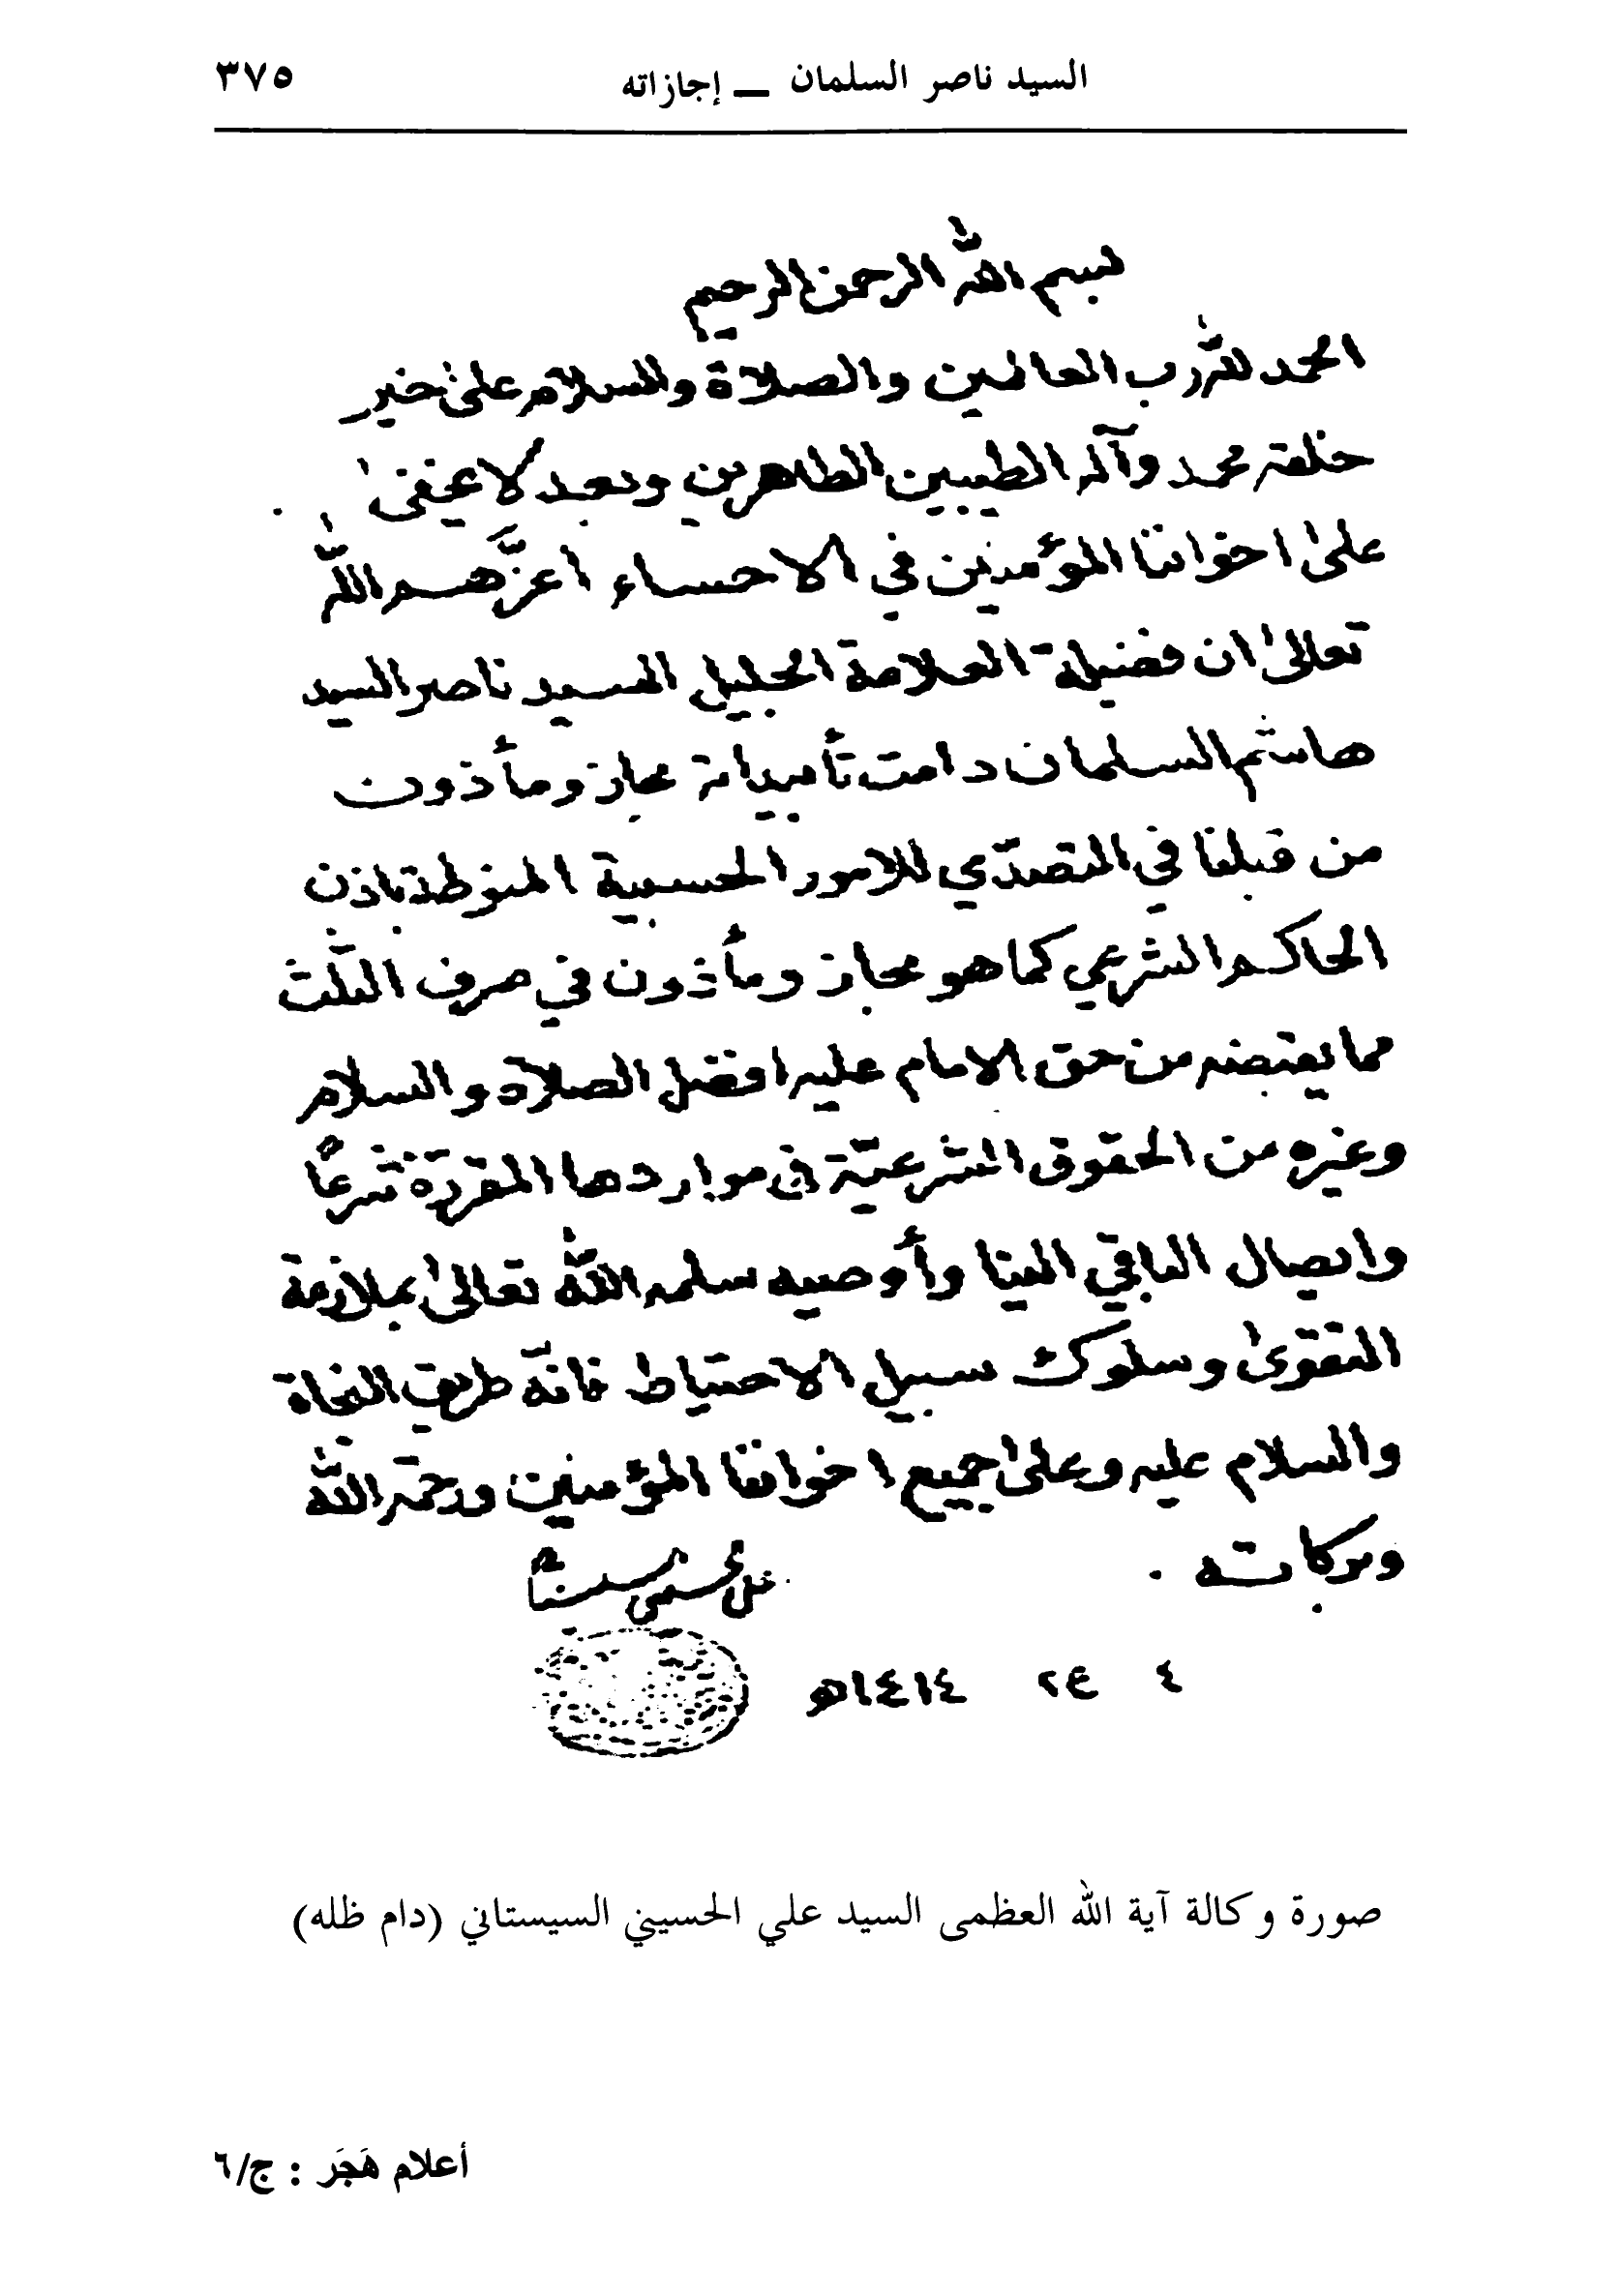 السيد ناصر السلمان ــ إجازاته ٣٧٥
بسم الله الرحمن الرحيم
الحمد لله رب العالمين والصلاة والسلام علىٰ خير
خلقه محمد وآله الطيبين الطاهرين وبعد لا يخفىٰ
علىٰ اخواننا المؤمنين في الاحساء اعزَّهم اللّٰه
تعالىٰ ان فضيلة العلامة الجليل السيد ناصر السيد
هاشم السلمان دامت تأييداته مجاز ومأذون
من قبلنا في التصدّي للامور الحسبية المنوطة باذن
الحاكم الشرعي كما هو مجاز ومأذون في صرف الثلث
مما يقبضه من حق الامام عليه افضل الصلاة والسلام
وغيره من الحقوق الشرعيّة في مواردها المقررة شرعاً
وايصال الباقي الينا وأوصيه سلمه اللّٰه تعالىٰ بملازمة
التقوىٰ وسلوك سبيل الاحتياط فانّه طريق النجاة
والسلام عليه وعلىٰ جميع اخواننا المؤمنين ورحمة اللّٰه
وبركاته .
علي الحسيني السيستاني
٤ ع٢ ١٤١٤هـ
صورة وكالة آية الله العظمى السيد علي الحسيني السيستاني (دام ظله)
أعلام هَجَر : ج/٦